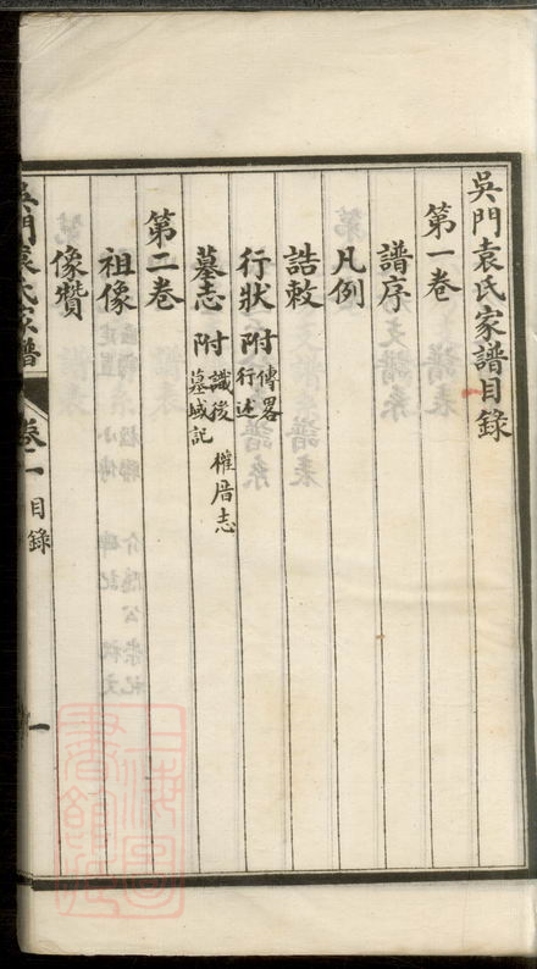 吳門袁氏家譜目錄
第一卷
譜序
凡例
誥敕
行狀 附 傳畧 行述
墓志 附 識後 權厝志 墓域記
第二卷
祖像
像贊
吳門袁氏家譜 卷一 目錄 一
上海圖書館藏